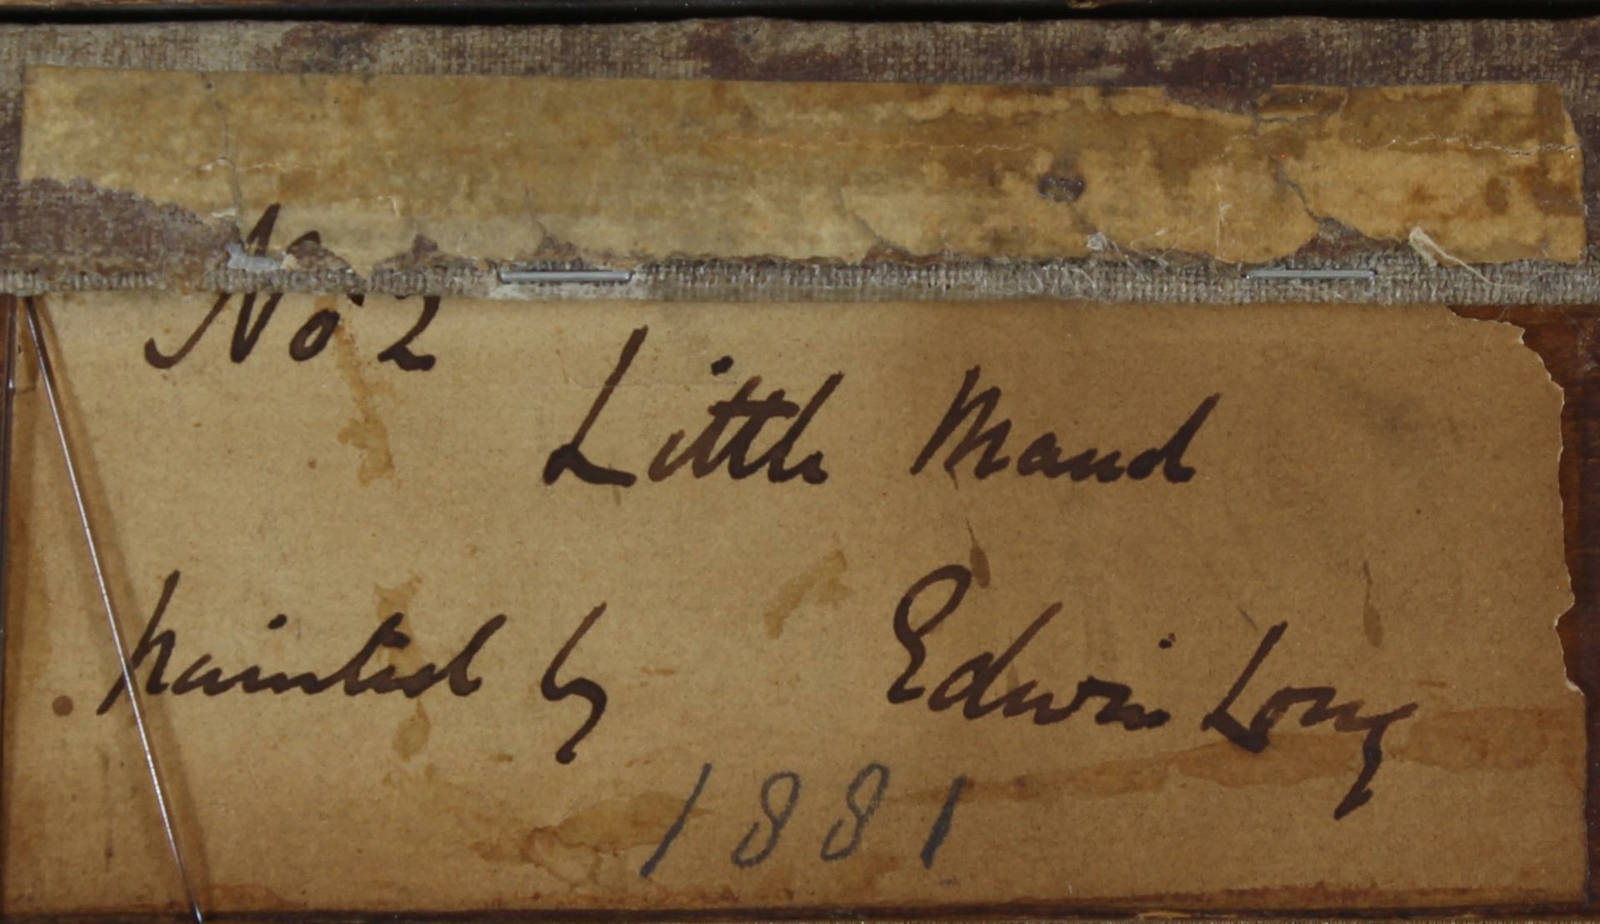 No 2
Little Maud
painted by Edwin Long
1881